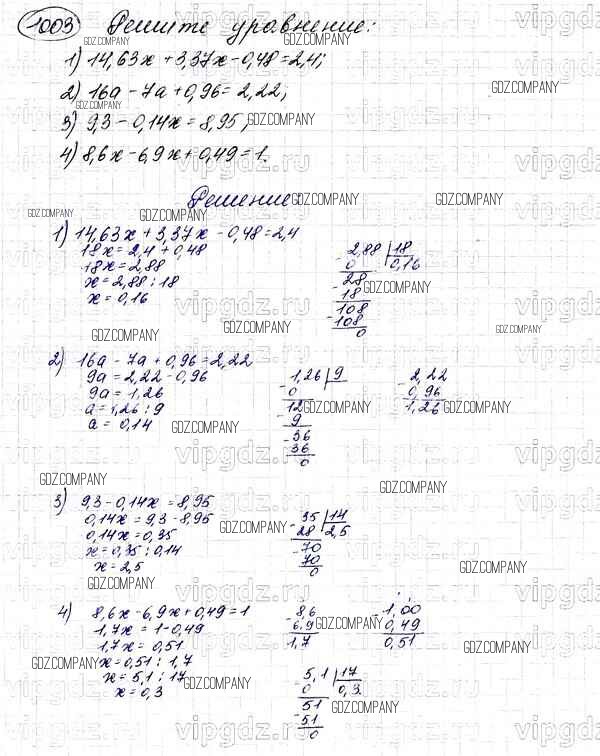 1003 Решите уравнение:
1) 14,63х + 3,37х - 0,48 = 2,4;
2) 16а - 7а + 0,96 = 2,22;
3) 9,3 - 0,14х = 8,95;
4) 8,6х - 6,9х + 0,49 = 1.
Решение
1) 14,63х + 3,37х - 0,48 = 2,4
18х = 2,4 + 0,48
18х = 2,88
х = 2,88 : 18
х = 0,16
2,88 | 18
0 0,16
28
- 18
108
- 108
0
2) 16а - 7а + 0,96 = 2,22
9а = 2,22 - 0,96
9а = 1,26
а = 1,26 : 9
а = 0,14
- 1,26 | 9
0
12
- 9
- 36
36
0
- 2,22
0,96
1,26
3) 9,3 - 0,14х = 8,95
0,14х = 9,3 - 8,95
0,14х = 0,35
х = 0,35 : 0,14
х = 2,5
- 35 | 14
28 2,5
- 70
70
0
4) 8,6х - 6,9х + 0,49 = 1
1,7х = 1 - 0,49
1,7х = 0,51
х = 0,51 : 1,7
х = 5,1 : 17
х = 0,3
- 8,6
6,9
1,7
- 1,00
0,49
0,51
- 5,1 | 17
0 0,3
51
- 51
0
GDZ.COMPANY
vipgdz.ru